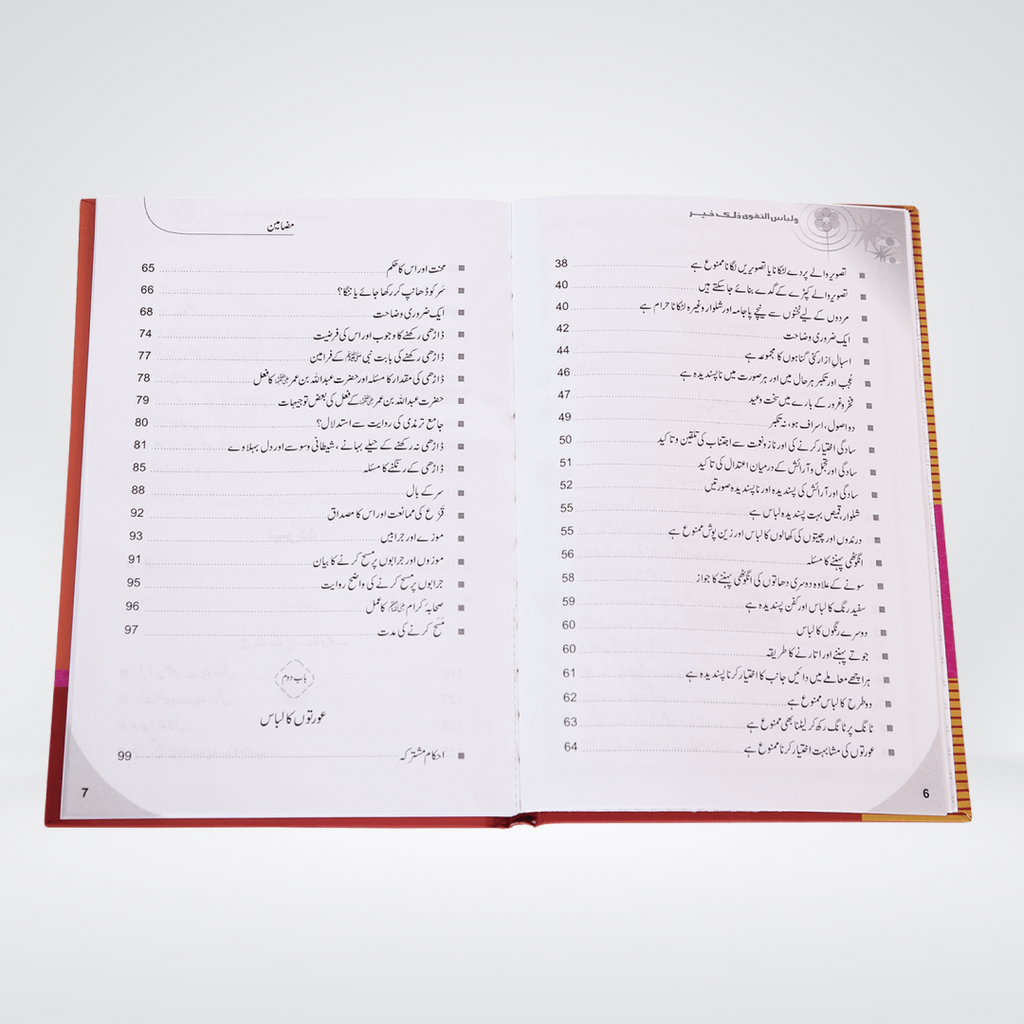 ولباس التقوى ذلك خير
تصویر والے پردے لٹکانا یا تصویریں لگانا ممنوع ہے 38
تصویر والے کپڑے کے گدے بنائے جا سکتے ہیں 40
مردوں کے لیے ٹخنوں سے نیچے پاجامہ اور شلوار وغیرہ لٹکانا حرام ہے 40
ایک ضروری وضاحت 42
اسبالِ ازار کئی گناہوں کا مجموعہ ہے 44
عُجب اور تکبر ہر حال میں اور ہر صورت میں ناپسندیدہ ہے 46
فخر و غرور کے بارے میں سخت وعید 47
دو اصول، اسراف ہو، نہ تکبر 49
سادگی اختیار کرنے کی اور ناز و نعمت سے اجتناب کی تلقین و تاکید 50
سادگی اور تجمل و آرائش کے درمیان اعتدال کی تاکید 51
سادگی اور آرائش کی پسندیدہ اور ناپسندیدہ صورتیں 52
شلوار قمیص بہت پسندیدہ لباس ہے 55
درندوں اور چیتوں کی کھالوں کا لباس اور زین پوش ممنوع ہے 55
انگوٹھی پہننے کا مسئلہ 56
سونے کے علاوہ دوسری دھاتوں کی انگوٹھی پہننے کا جواز 58
سفید رنگ کا لباس اور کفن پسندیدہ ہے 59
دوسرے رنگوں کا لباس 60
جوتے پہننے اور اتارنے کا طریقہ 60
ہر اچھے معاملے میں دائیں جانب کا اختیار کرنا پسندیدہ ہے 61
دو طرح کا لباس ممنوع ہے 62
ٹانگ پر ٹانگ رکھ کر لیٹنا بھی ممنوع ہے 63
عورتوں کی مشابہت اختیار کرنا ممنوع ہے 64
6
مضامین
مخنث اور اس کا حکم 65
سَر کو ڈھانپ کر رکھا جائے یا ننگا؟ 66
ایک ضروری وضاحت 68
ڈاڑھی رکھنے کا وجوب اور اس کی فرضیت 74
ڈاڑھی رکھنے کی بابت نبی ﷺ کے فرامین 77
ڈاڑھی کی مقدار کا مسئلہ اور حضرت عبداللہ بن عمر رضی اللہ عنہما کا فعل 78
حضرت عبداللہ بن عمر رضی اللہ عنہما کے فعل کی بعض توجیہات 79
جامع ترمذی کی روایت سے استدلال؟ 80
ڈاڑھی نہ رکھنے کے حیلے بہانے، شیطانی وسوسے اور دل بہلاوے 81
ڈاڑھی کے رنگنے کا مسئلہ 85
سر کے بال 88
قزع کی ممانعت اور اس کا مصداق 92
موزے اور جرابیں 93
موزوں اور جرابوں پر مسح کرنے کا بیان 91
جرابوں پر مسح کرنے کی واضح روایت 95
صحابۂ کرام رضی اللہ عنہم کا عمل 96
مسح کرنے کی مدت 97
باب دوم
عورتوں کا لباس
احکام مشترکہ 99
7